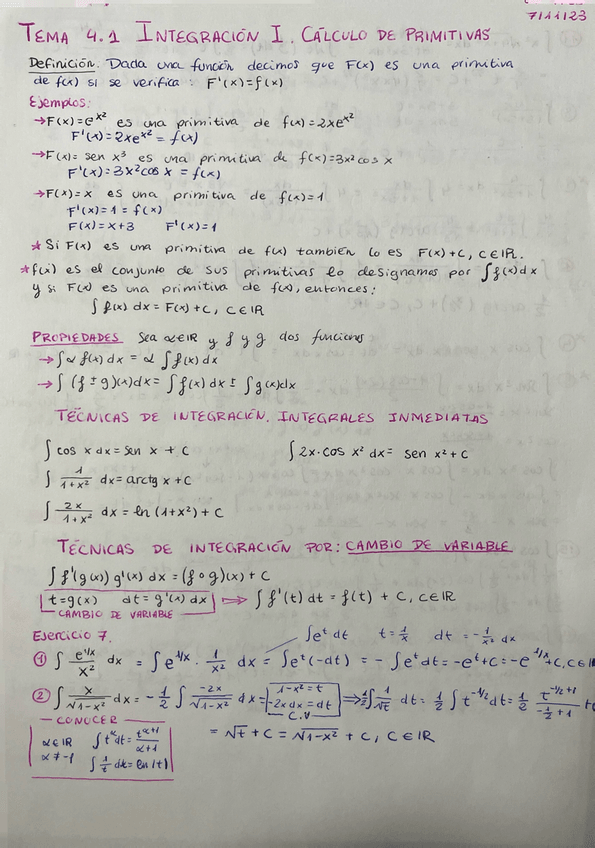 7/11/23
TEMA 4.1 INTEGRACIÓN I. CÁLCULO DE PRIMITIVAS
Definición. Dada una función decimos que F(x) es una primitiva
de f(x) si se verifica: F'(x)=f(x)
Ejemplos:
→F(x)=e^x² es una primitiva de f(x)=2xe^x²
F'(x)=2xe^x² = f(x)
→F(x)= sen x³ es una primitiva de f(x)=3x² cos x
F'(x)=3x² cos x = f(x)
→F(x)=x es una primitiva de f(x)=1
F'(x)=1=f(x)
F(x)=x+3 F'(x)=1
* Si F(x) es una primitiva de f(x) también lo es F(x)+C, C∈ℝ.
* f(x) es el conjunto de sus primitivas lo designamos por ∫f(x)dx
y si F(x) es una primitiva de f(x), entonces:
∫ f(x) dx = F(x) + C, C∈ℝ
PROPIEDADES Sea α∈ℝ y f y g dos funciones
→∫α f(x) dx = α ∫f(x) dx
→∫(f ± g)(x)dx = ∫f(x) dx ± ∫g(x)dx
TÉCNICAS DE INTEGRACIÓN. INTEGRALES INMEDIATAS
∫cos x dx = sen x + C ∫2x·cos x² dx = sen x² + C
∫ 1/(1+x²) dx = arctg x + C
∫ 2x/(1+x²) dx = ln (1+x²) + C
TÉCNICAS DE INTEGRACIÓN POR: CAMBIO DE VARIABLE
∫f'(g(x)) g'(x) dx = (f∘g)(x) + C
t=g(x) dt=g'(x) dx ⇒ ∫f'(t) dt = f(t) + C, C∈ℝ
CAMBIO DE VARIABLE
Ejercicio 7. ∫e^t dt t=1/x dt = -1/x² dx
① ∫ e^(1/x)/x² dx = ∫e^(1/x) · 1/x² dx = ∫e^t(-dt) = - ∫e^t dt = -e^t+C = -e^(1/x)+C, C∈ℝ
② ∫ x/√(1-x²) dx = -1/2 ∫ -2x/√(1-x²) dx = 1-x²=t -2x dx=dt C.V ⇒ 1/2∫ 1/√t dt = 1/2 ∫t^(-1/2) dt = 1/2 t^(-1/2+1)/(-1/2+1)
= √t + C = √(1-x²) + C, C∈ℝ
CONOCER
α∈ℝ ∫t^α dt = t^(α+1)/(α+1)
α≠-1
∫ 1/t dt = ln|t|